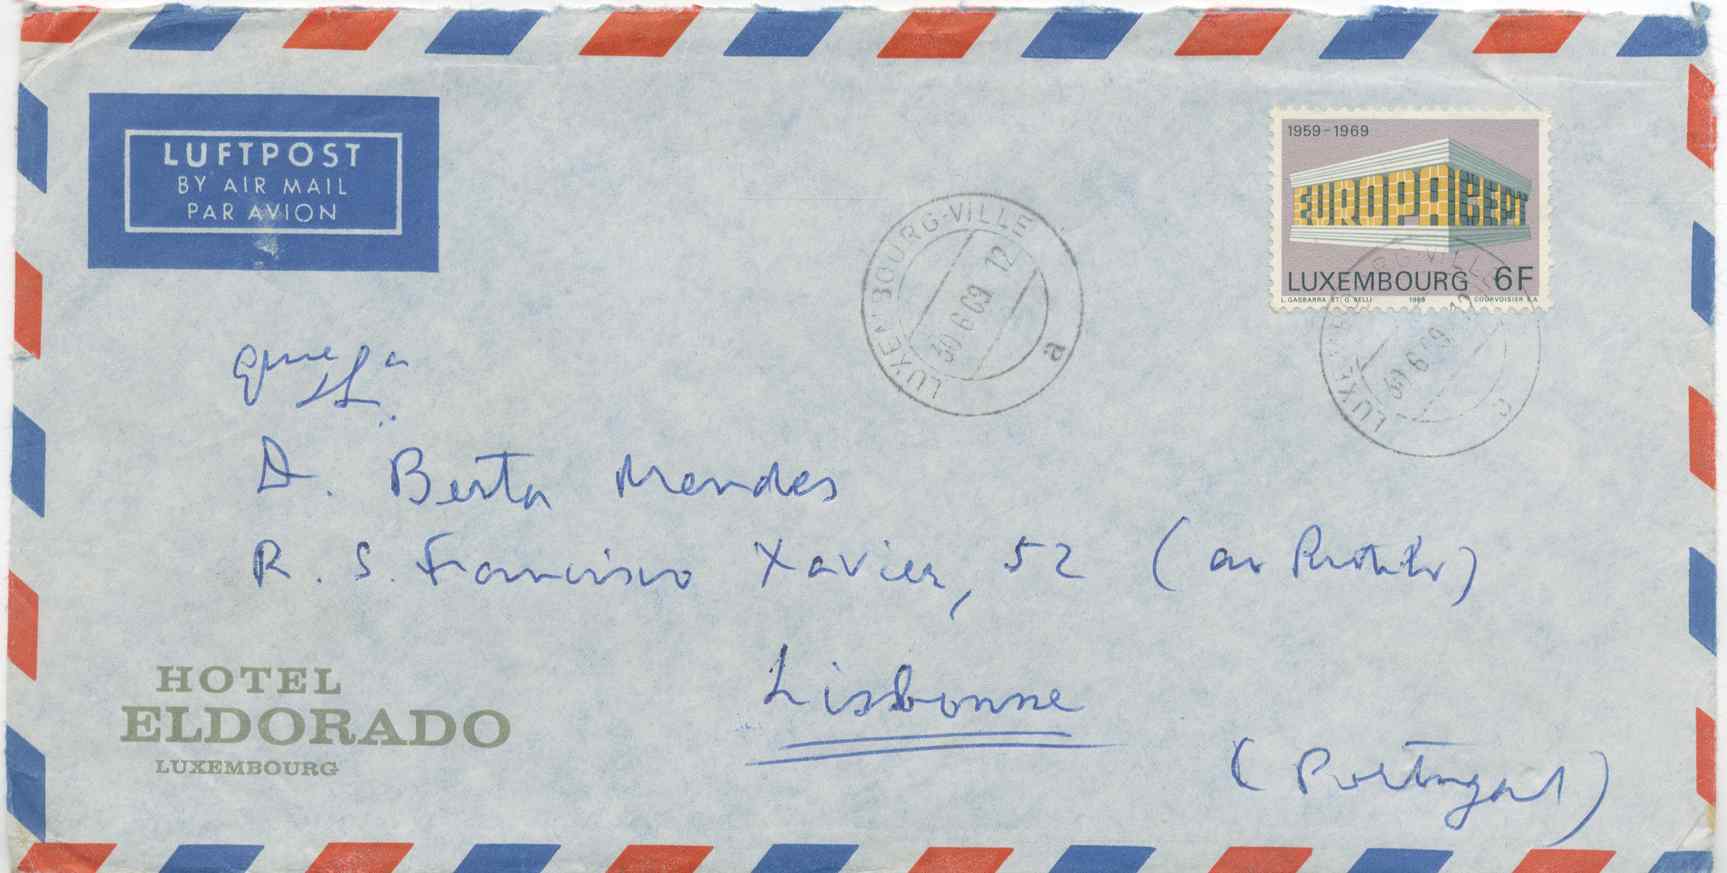 LUFTPOST
BY AIR MAIL
PAR AVION
1959-1969
EUROPA CEPT
LUXEMBOURG 6F
L. GASBARRA ET G. BELLI 1969 COURVOISIER S.A.
LUXEMBOURG-VILLE
30 6 69 12
a
LUXEMBOURG-VILLE
30 6 69 12
D. Berta Mendes
R. S. Francisco Xavier, 52 (ao
Lisbonne
(Portugal)
HOTEL
ELDORADO
LUXEMBOURG